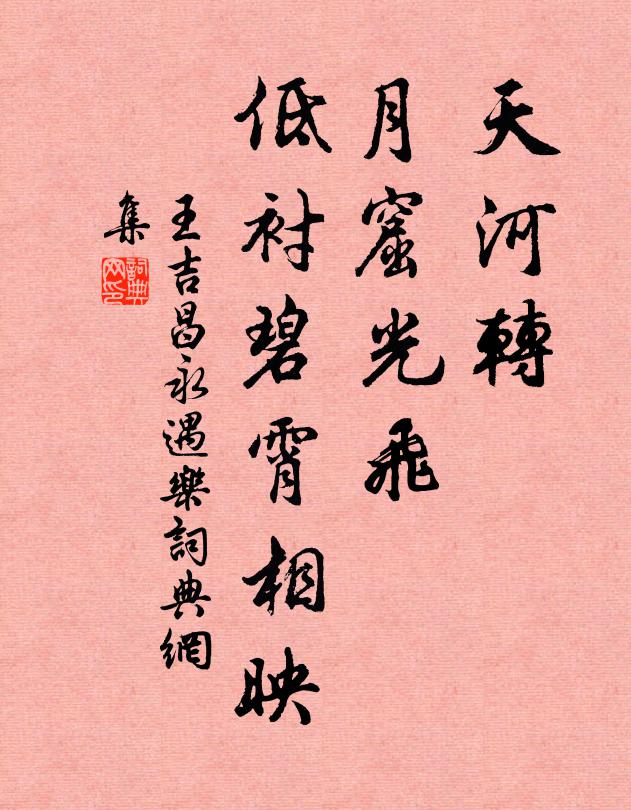 天河轉
月窟光飛
低襯碧霄相映
王吉昌永遇樂詞典網
集
詞典網印